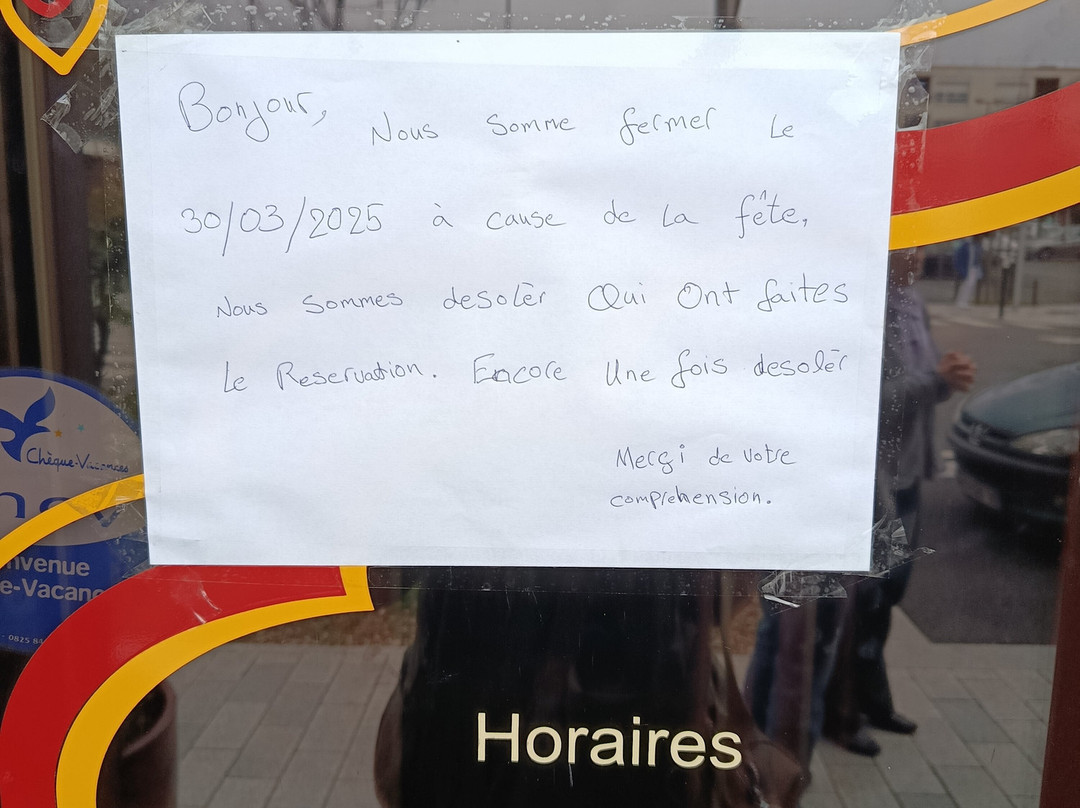 Bonjour, Nous Somme fermer Le
30/03/2025 à cause de La fête,
Nous Sommes desolèr Qui Ont faites
Le Reservation. Encore Une fois desolèr
Merçi de votre
compréhension.
Chèque-Vacances
nvenue
e-Vacanc
0825 84
Horaires